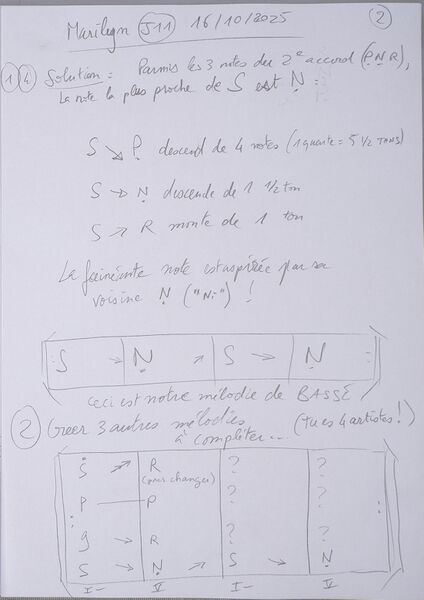 Marilyn J11 16/10/2025 2
1 4 Solution : Parmis les 3 notes du 2e accord (P Ṇ R),
La note la plus proche de S est Ṇ :
S ↘ P̣ descend de 4 notes (1 quarte = 5 ½ TONS)
S → Ṇ descende de 1 ½ ton
S ↗ R monte de 1 ton
La note est aspirée par sa
voisine Ṇ ("Ni") !
S → Ṇ ↗ S → Ṇ
ceci est notre mélodie de BASSE
2 Créer 3 autres mélodies (tu es 4 artistes !)
à compléter...
Ṡ ↗ R ? ?
(pour changer)
P — P ? ?
g → R ? ?
S → Ṇ ↗ S → Ṇ
I- V I- V